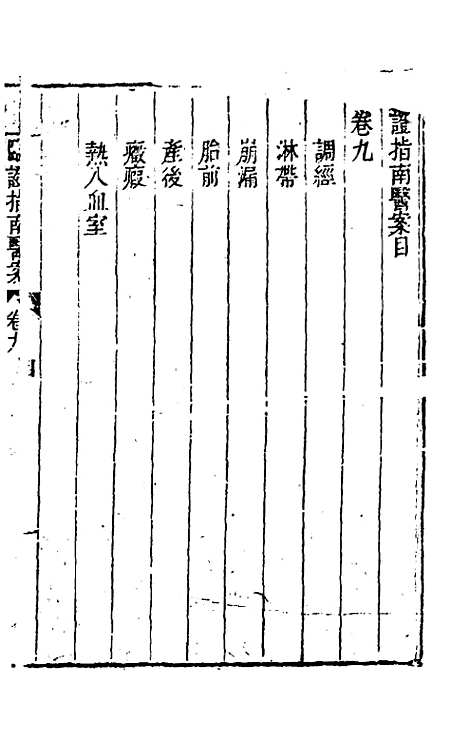 證指南醫案目
卷九
調經
淋帶
崩漏
胎前
產後
癥瘕
熱入血室
證指南醫案 卷九 目